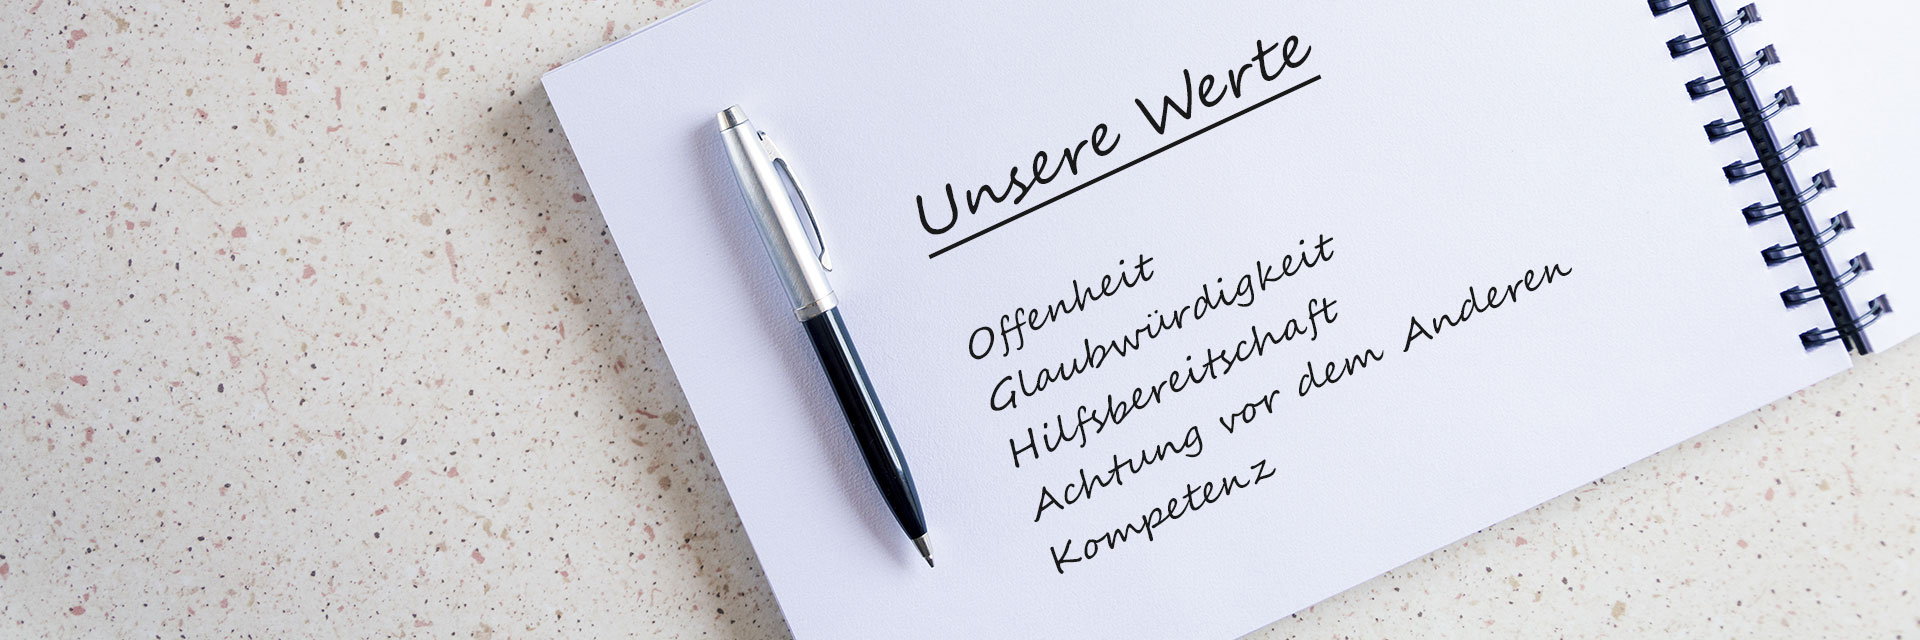 Unsere Werte
Offenheit
Glaubwürdigkeit
Hilfsbereitschaft
Achtung vor dem Anderen
Kompetenz